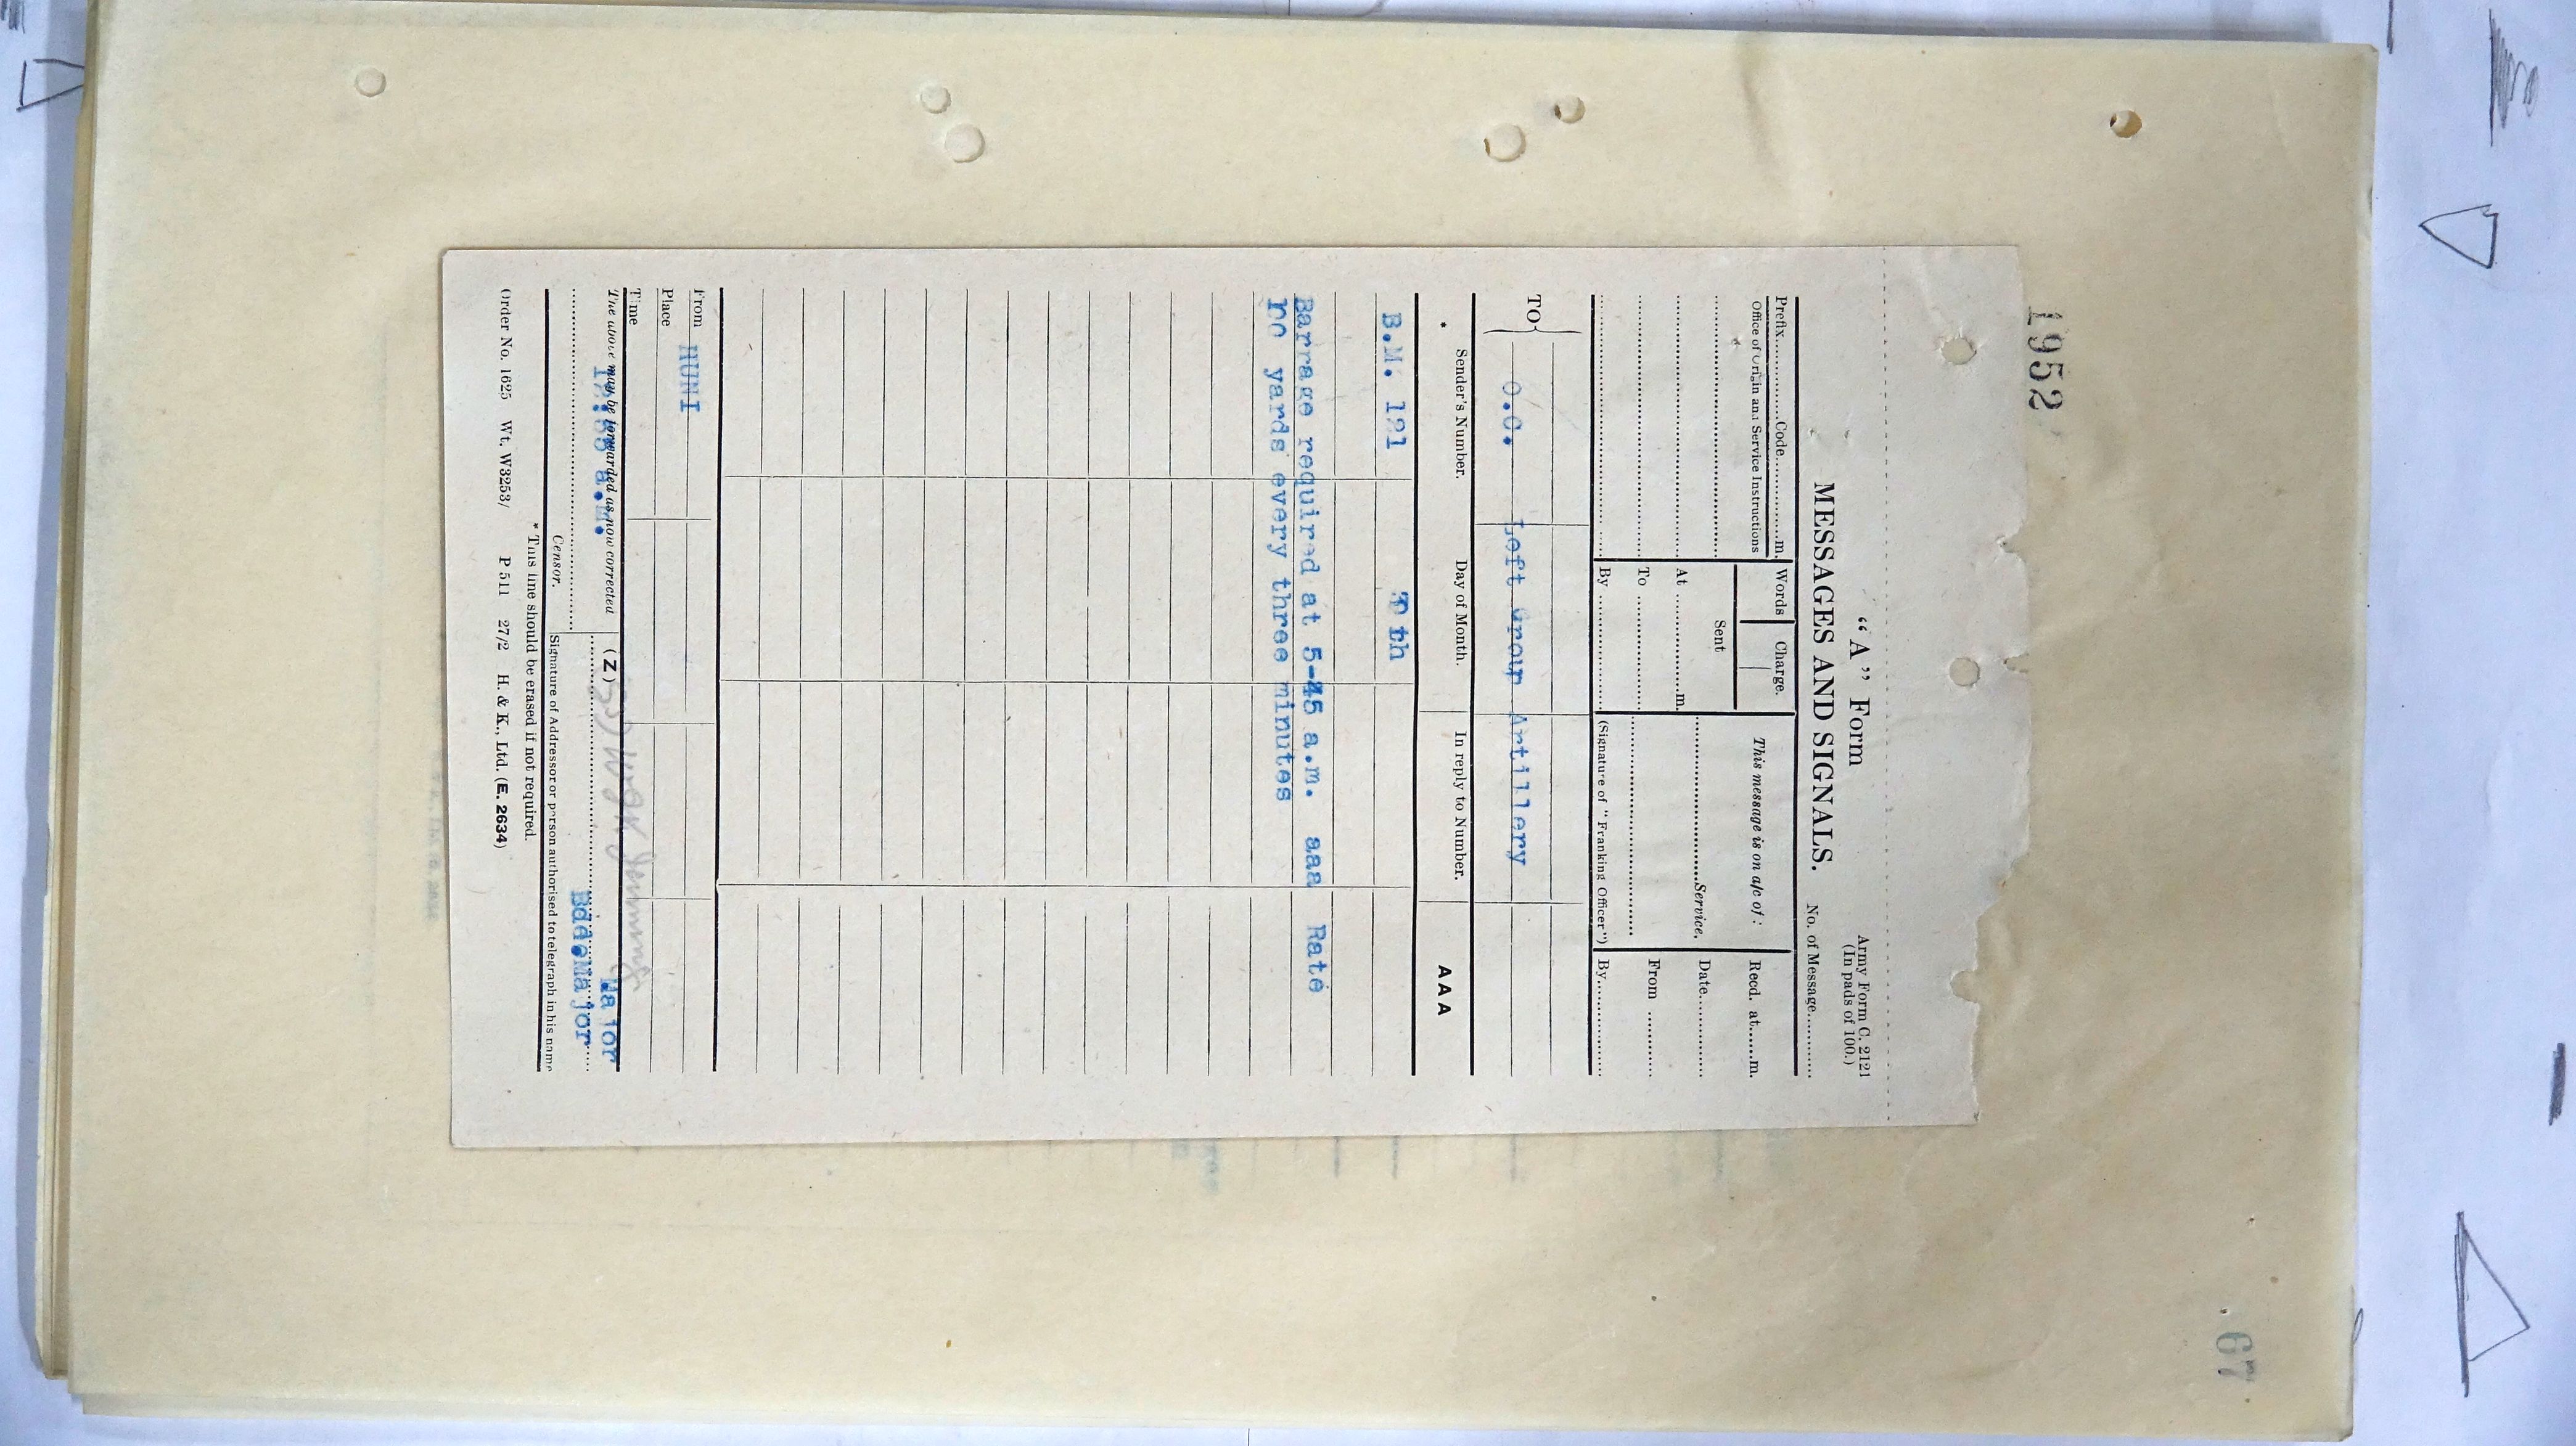 1952
"A" Form
Army Form C. 2121
(In pads of 100.)
MESSAGES AND SIGNALS.
No. of Message............
Prefix............Code............m.
Words
Charge.
This message is on a/c of:
Recd. at......m.
Office of Origin and Service Instructions
Sent
............Service.
Date............
At ............m.
To ............
From ............
By ............
(Signature of "Franking Officer")
By............
TO
O.C. Left Group Artillery
Sender's Number.
Day of Month.
In reply to Number.
AAA
B.M. 121
th
Barrage required at 5-45 a.m. aaa Rate
yards every three minutes
From HUNI
Place
Time
a.m.
The above may be forwarded as now corrected
(Z)
Major
Bde.Major
Censor.
Signature of Addressor or person authorised to telegraph in his name
* This line should be erased if not required.
Order No. 1625 Wt. W3253/ P 511 27/2 H. & K., Ltd. (E. 2634)
67